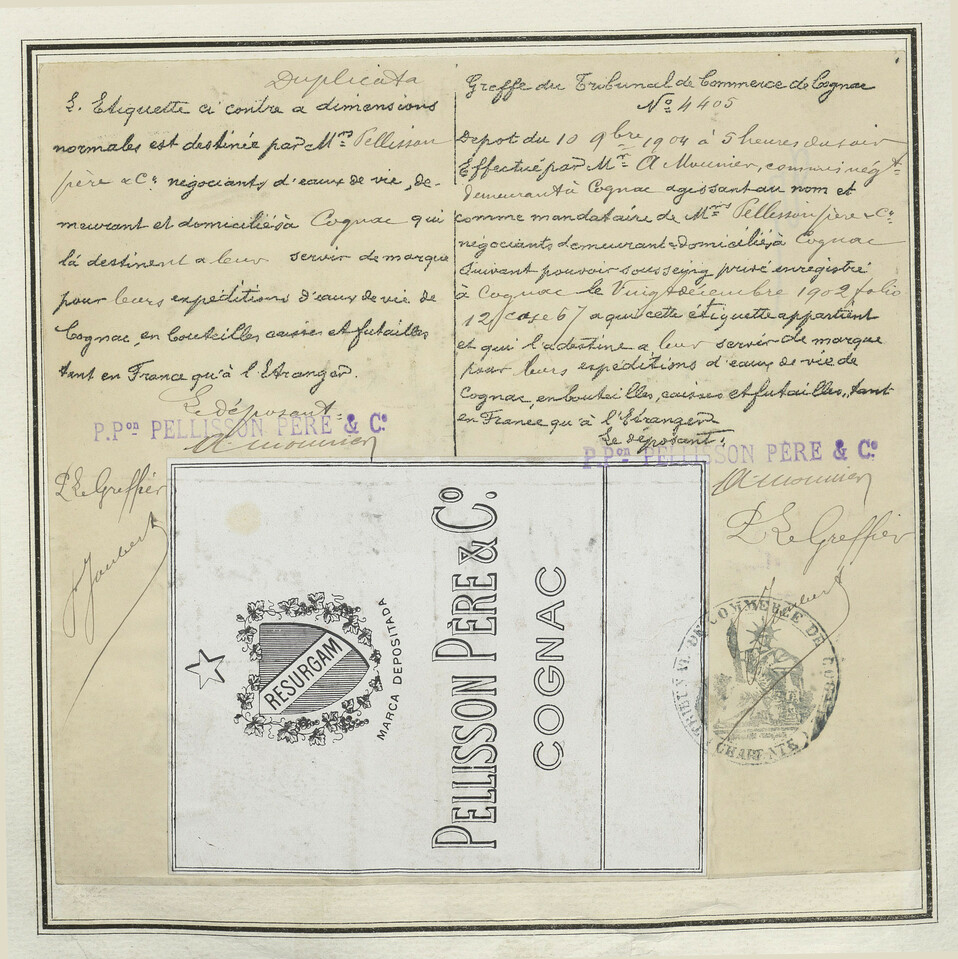 Duplicata
L. Etiquette ci contre a dimensions
normales est destinée par Mrs Pellisson
père & Cie négociants d'eaux de vie, de-
meurant et domiciliés à Cognac qui
la destinent a leur servir de marque
pour leurs expéditions d'eaux de vie de
Cognac, en bouteilles caisses et futailles
tant en France qu'à l'Etranger.
Le déposant:
P.Pon PELLISSON PÈRE & Co
A Mounier
P. Le Greffier
Joubert
Greffe du Tribunal de Commerce de Cognac
No 4405
Depot du 10 9bre 1904 à 5 heures du soir
Effectué par Mr A Mounier, commis négt
demeurant à Cognac agissant au nom et
comme mandataire de Mrs Pellisson père & Cie
négociants demeurant & domiciliés à Cognac
Suivant pouvoir sous seing privé enregistré
à Cognac le Vingt décembre 1902 folio
12, case 67 a qui cette étiquette appartient
et qui l'a destine a leur servir de marque
pour leurs expéditions d'eaux de vie de
Cognac, en bouteilles, caisses et futailles, tant
en France qu'à l'Etranger
Le déposant:
P.Pon PELLISSON PÈRE & Co
A Mounier
P. Le Greffier
Joubert
COMMERCE DE
CHARENTE
RESURGAM
MARCA DEPOSITADA
PELLISSON PÈRE & Co.
COGNAC